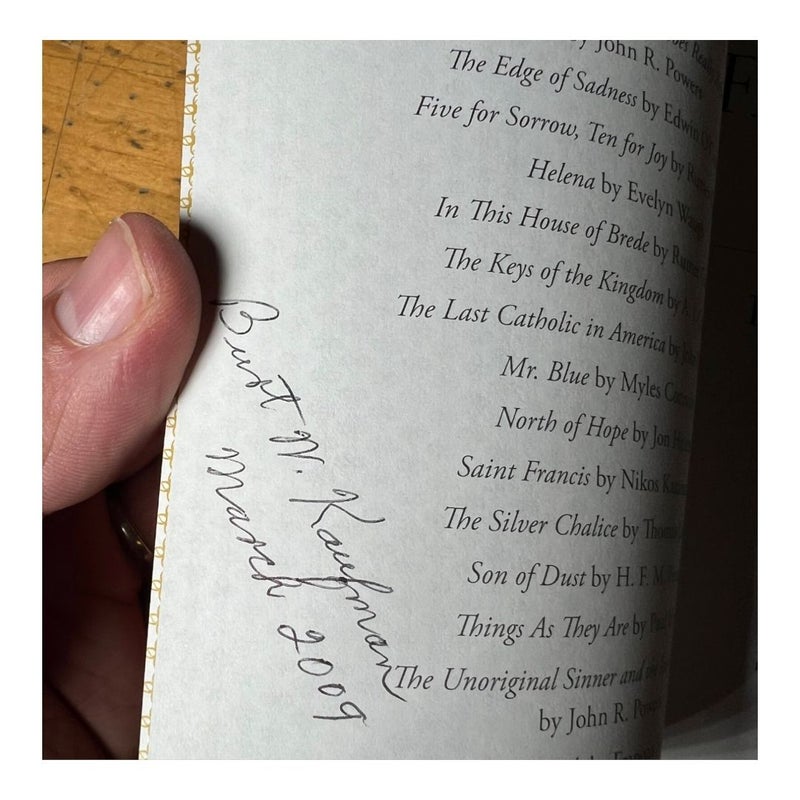 by John R. Powers
The Edge of Sadness by Edwin
Five for Sorrow, Ten for Joy by
Helena by Evelyn
In This House of Brede by
The Keys of the Kingdom by A.
The Last Catholic in America by
Mr. Blue by Myles
North of Hope by Jon
Saint Francis by Nikos
The Silver Chalice by
Son of Dust by H. F. M.
Things As They Are by
The Unoriginal Sinner and
by John R.
Burt W. Kaufman
March 2009